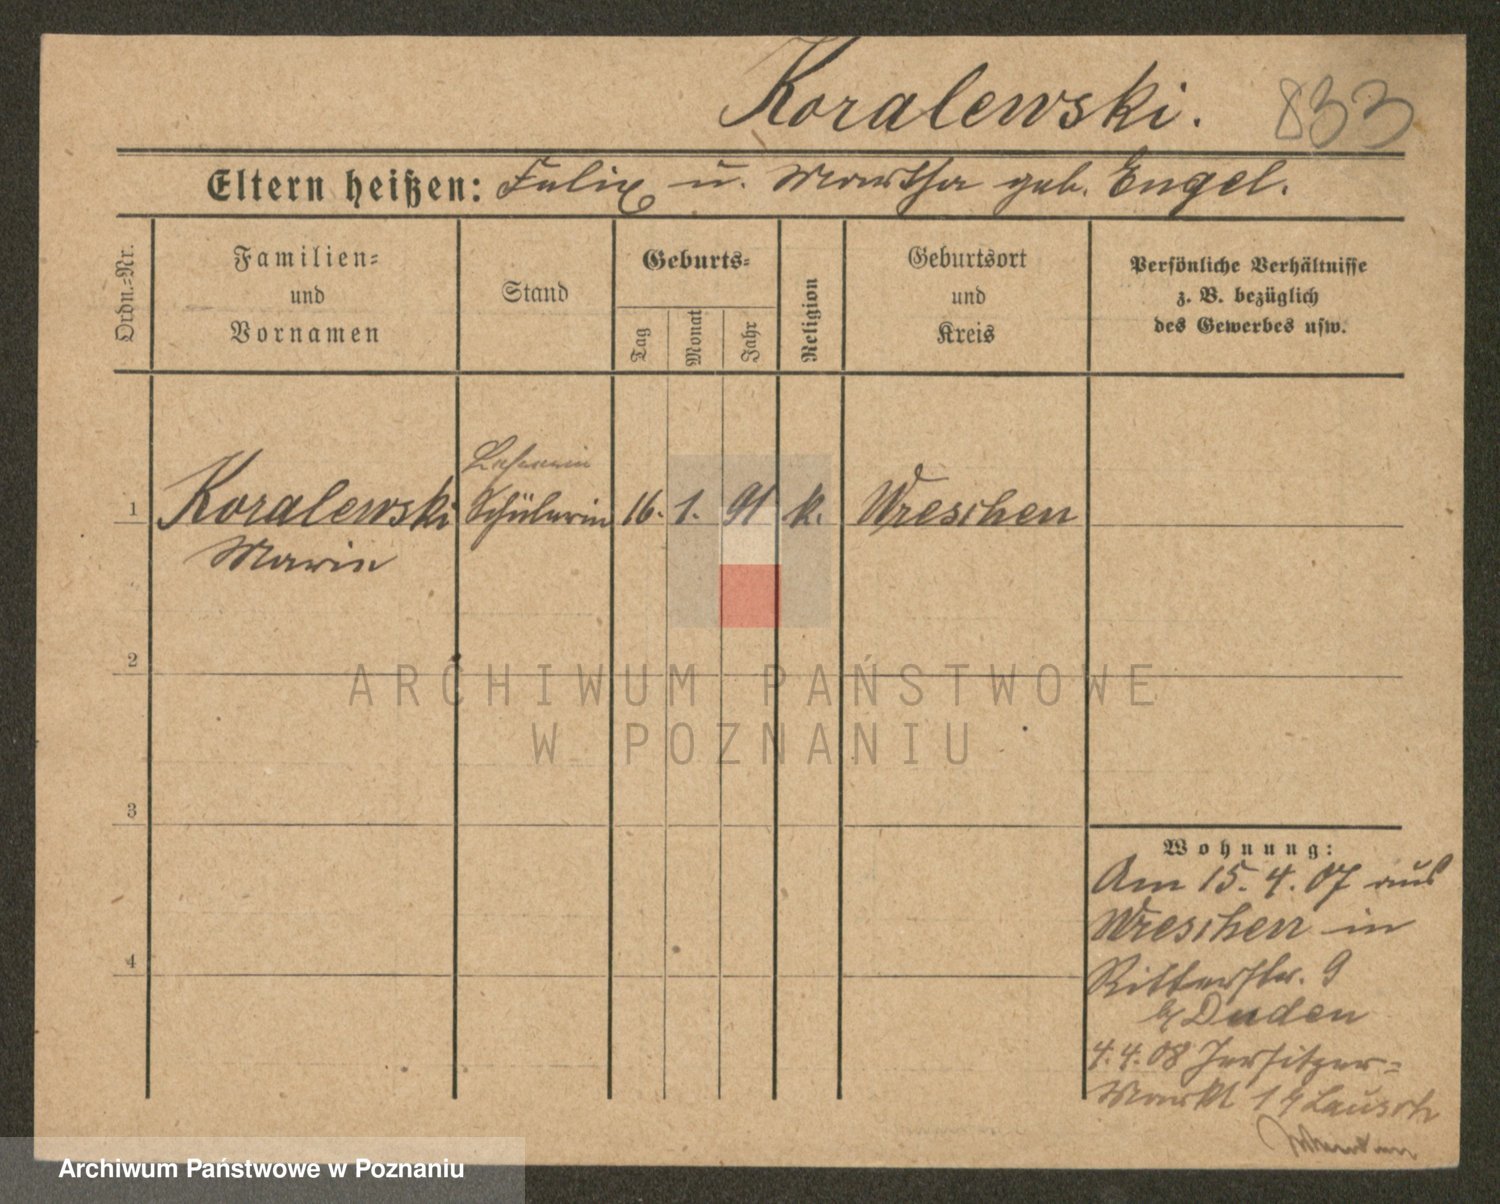 Koralewski. 833
Eltern heißen: Felix u. Martha geb. Engel.
Ordn.-Nr.
Familien-
und
Vornamen
Stand
Geburts-
Tag
Monat
Jahr
Religion
Geburtsort
und
Kreis
Persönliche Verhältnisse
z. B. bezüglich
des Gewerbes usw.
Lehrerin
1 Koralewski Schülerin 16. 1. 91 k. Wreschen
Marie
2
ARCHIWUM PAŃSTWOWE
W POZNANIU
3
Wohnung:
Am 15.4.07 aus
Wreschen in
Ritterstr. 9
b/ Duden
4
4.4.08 Jersitzer-
Markt 1 b/ Lausch
Archiwum Państwowe w Poznaniu